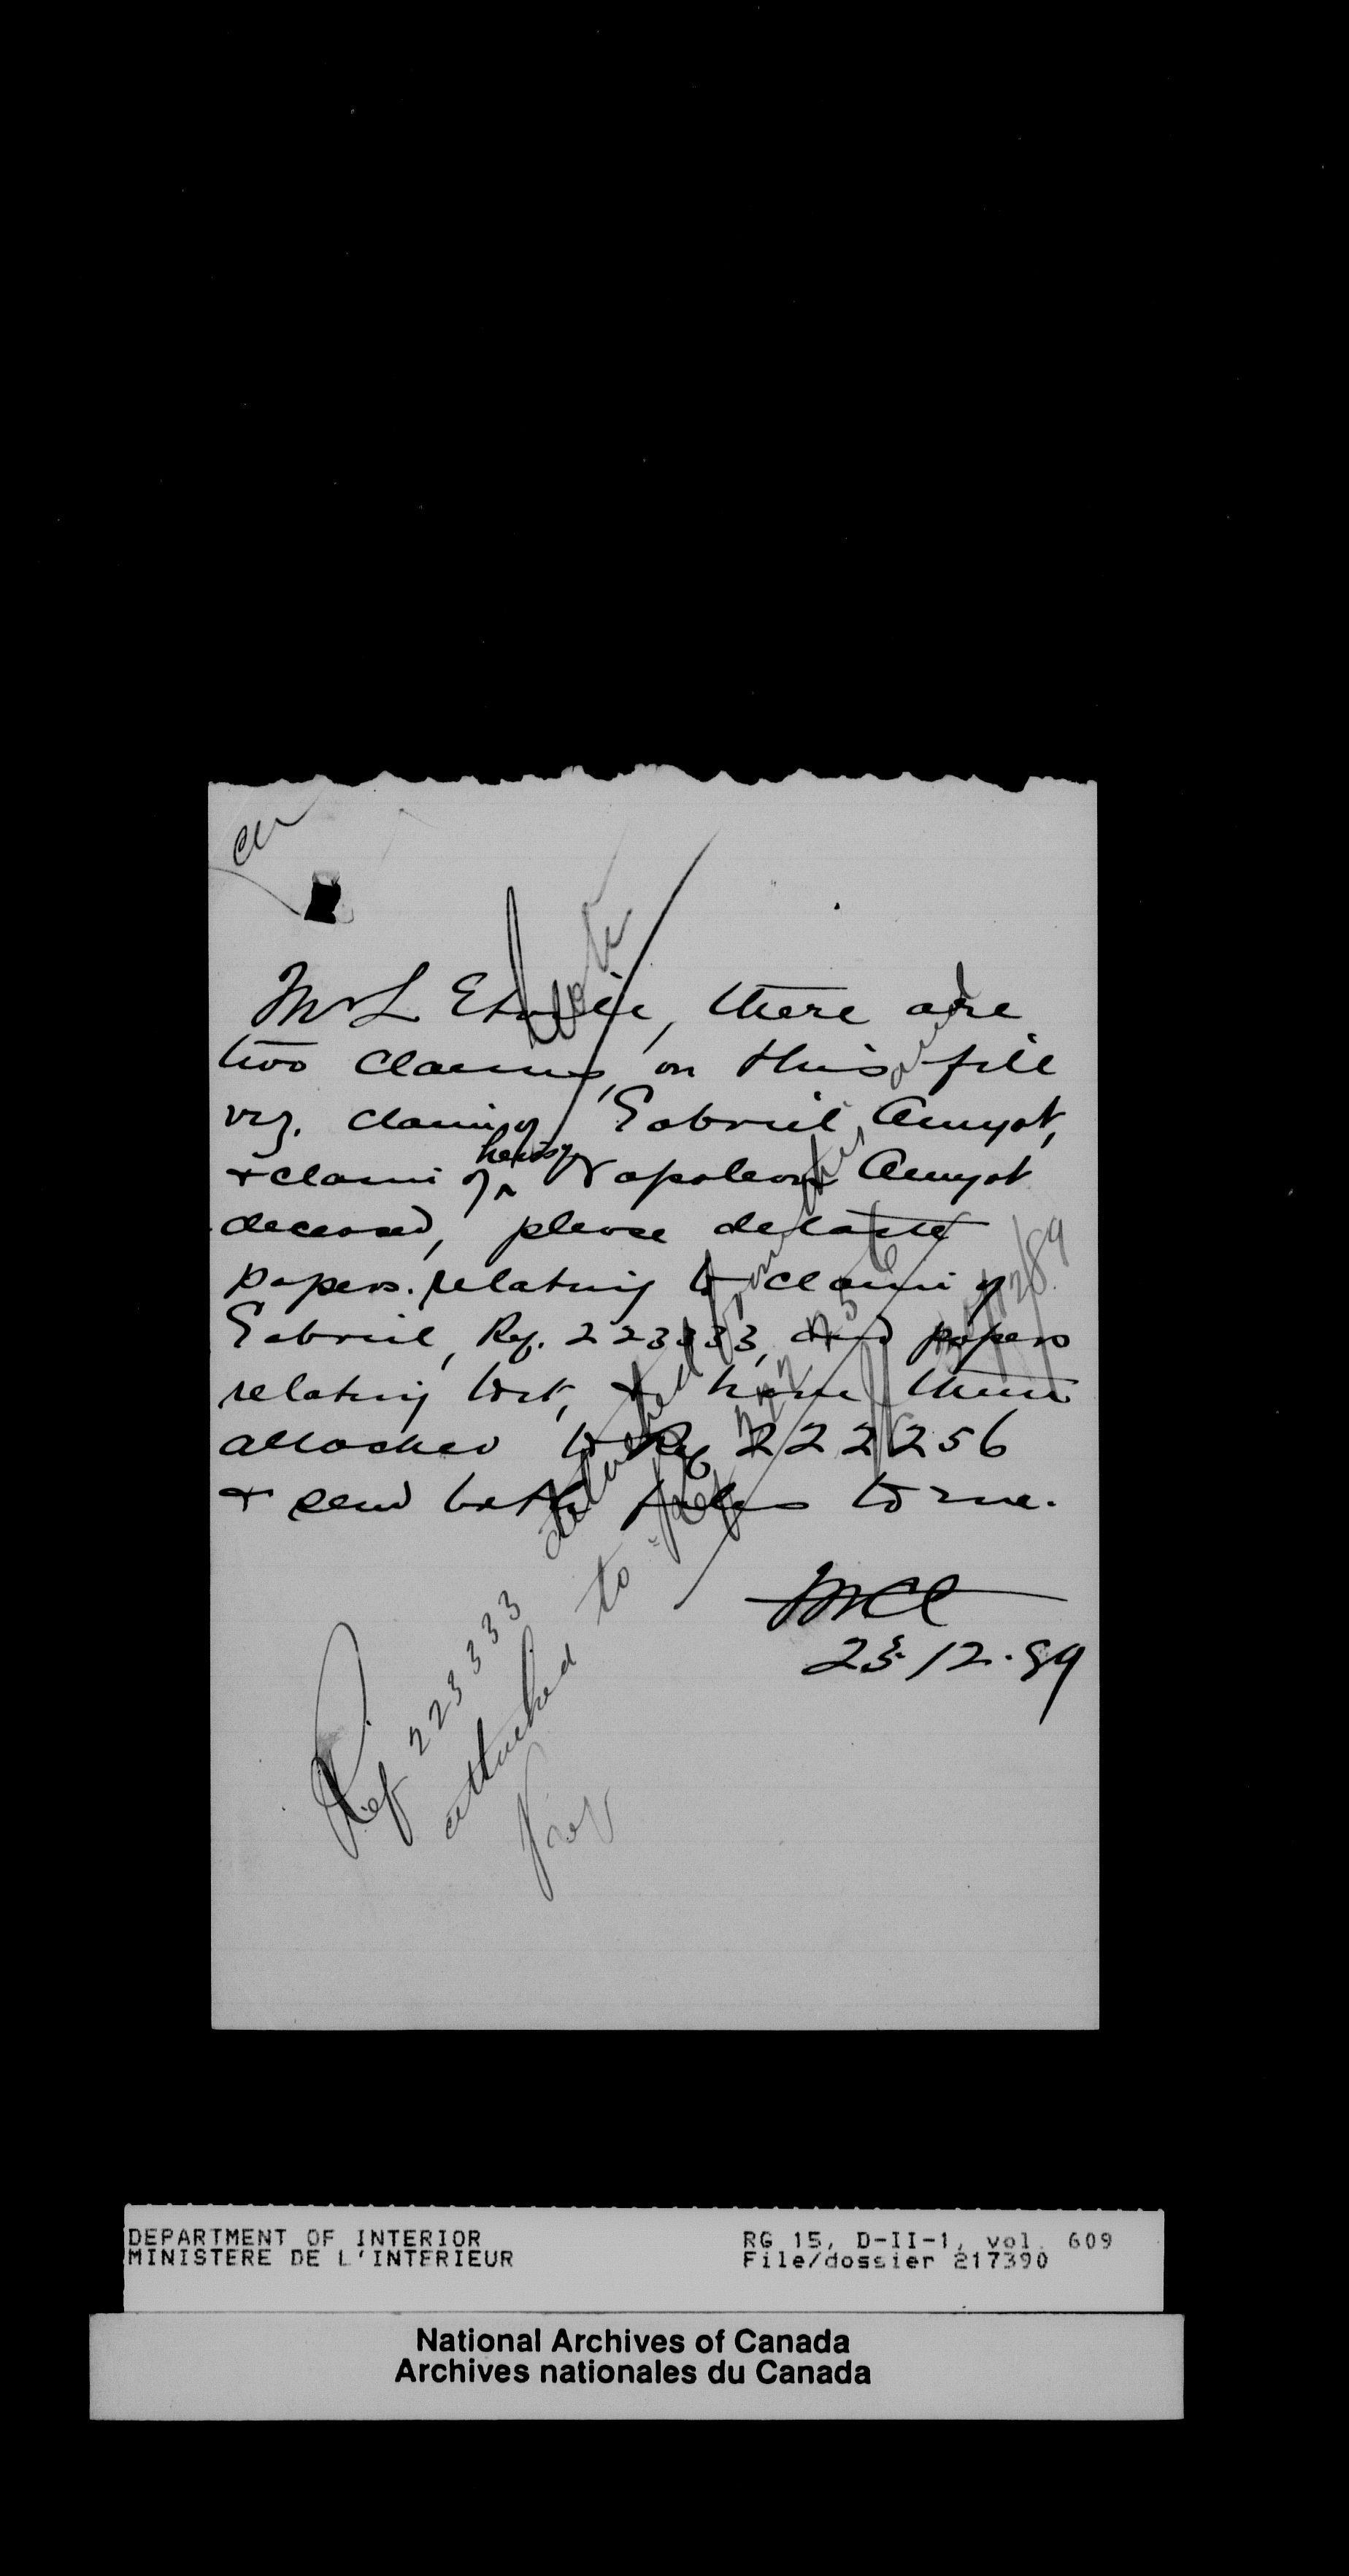 Mr L there are
two claims, on this file
viz. claim of Gabriel Amyot,
+ claim of heirs of Napoleon Amyot
deceased, please detach
papers relating to claim of
Gabriel, Ref. 223333, and papers
relating to it, & have them
attached to Ref 222256
+ send both files to me.
23.12.89
Ref 223333 detached from this and
attached to Ref 222256
DEPARTMENT OF INTERIOR
MINISTERE DE L'INTERIEUR
RG 15, D-II-1, vol. 609
File/dossier 217390
National Archives of Canada
Archives nationales du Canada